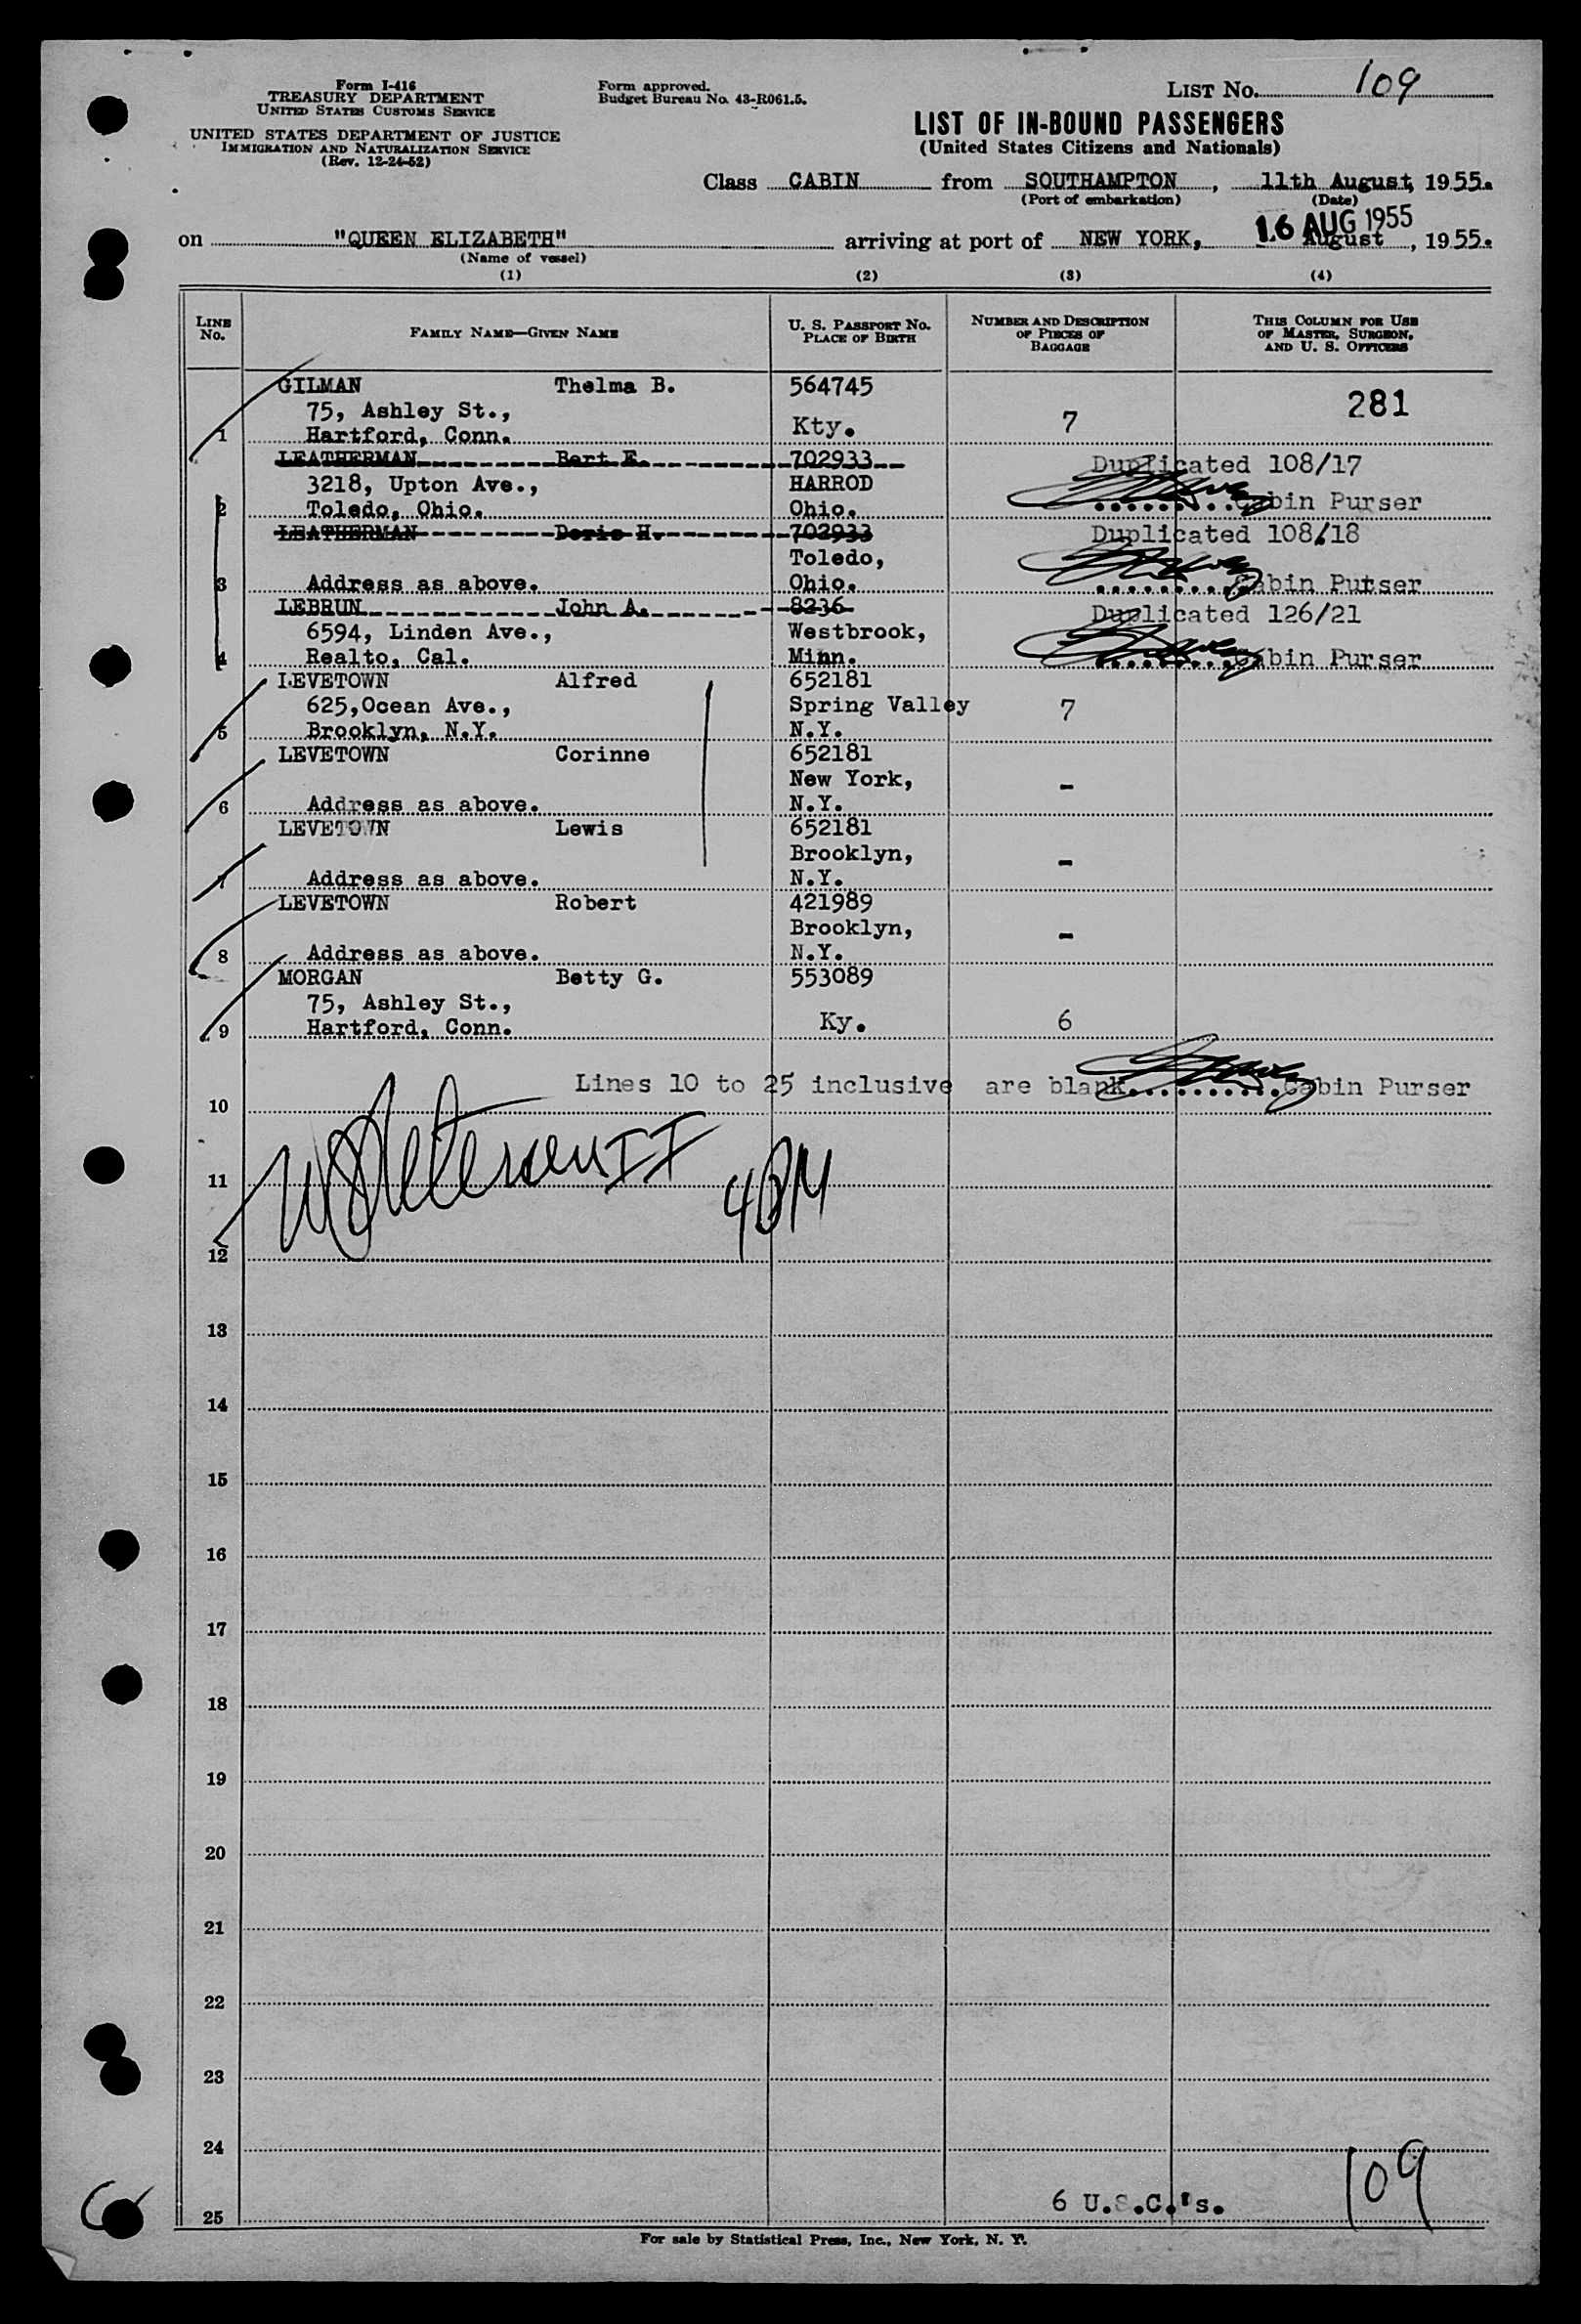 Form I-416
TREASURY DEPARTMENT
UNITED STATES CUSTOMS SERVICE
UNITED STATES DEPARTMENT OF JUSTICE
IMMIGRATION AND NATURALIZATION SERVICE
(Rev. 12-24-52)
Form approved.
Budget Bureau No. 43-R061.5.
LIST No. 109
LIST OF IN-BOUND PASSENGERS
(United States Citizens and Nationals)
Class CABIN from SOUTHAMPTON, 11th August, 1955.
(Port of embarkation) (Date)
16 AUG 1955
on "QUEEN ELIZABETH" arriving at port of NEW YORK, August, 1955.
(Name of vessel)
(1) (2) (3) (4)
LINE No. FAMILY NAME—GIVEN NAME U. S. PASSPORT No. PLACE OF BIRTH NUMBER AND DESCRIPTION OF PIECES OF BAGGAGE THIS COLUMN FOR USE OF MASTER, SURGEON, AND U. S. OFFICERS
GILMAN Thelma B. 564745
75, Ashley St., 281
1 Hartford, Conn. Kty. 7
LEATHERMAN Bert E. 702933 Duplicated 108/17
3218, Upton Ave., HARROD
2 Toledo, Ohio. Ohio. Cabin Purser
LEATHERMAN Doris H. 702933 Duplicated 108/18
Toledo,
3 Address as above. Ohio. Cabin Purser
LEBRUN John A. 8236 Duplicated 126/21
6594, Linden Ave., Westbrook,
4 Realto, Cal. Minn. Cabin Purser
LEVETOWN Alfred 652181
625,Ocean Ave., Spring Valley 7
5 Brooklyn, N.Y. N.Y.
LEVETOWN Corinne 652181
New York, -
6 Address as above. N.Y.
LEVETOWN Lewis 652181
Brooklyn, -
7 Address as above. N.Y.
LEVETOWN Robert 421989
Brooklyn, -
8 Address as above. N.Y.
MORGAN Betty G. 553089
75, Ashley St.,
9 Hartford, Conn. Ky. 6
Lines 10 to 25 inclusive are blank..........Cabin Purser
10
11
12
13
14
15
16
17
18
19
20
21
22
23
24
6 U.S.C.'s. 109
25
For sale by Statistical Press, Inc., New York, N. Y.